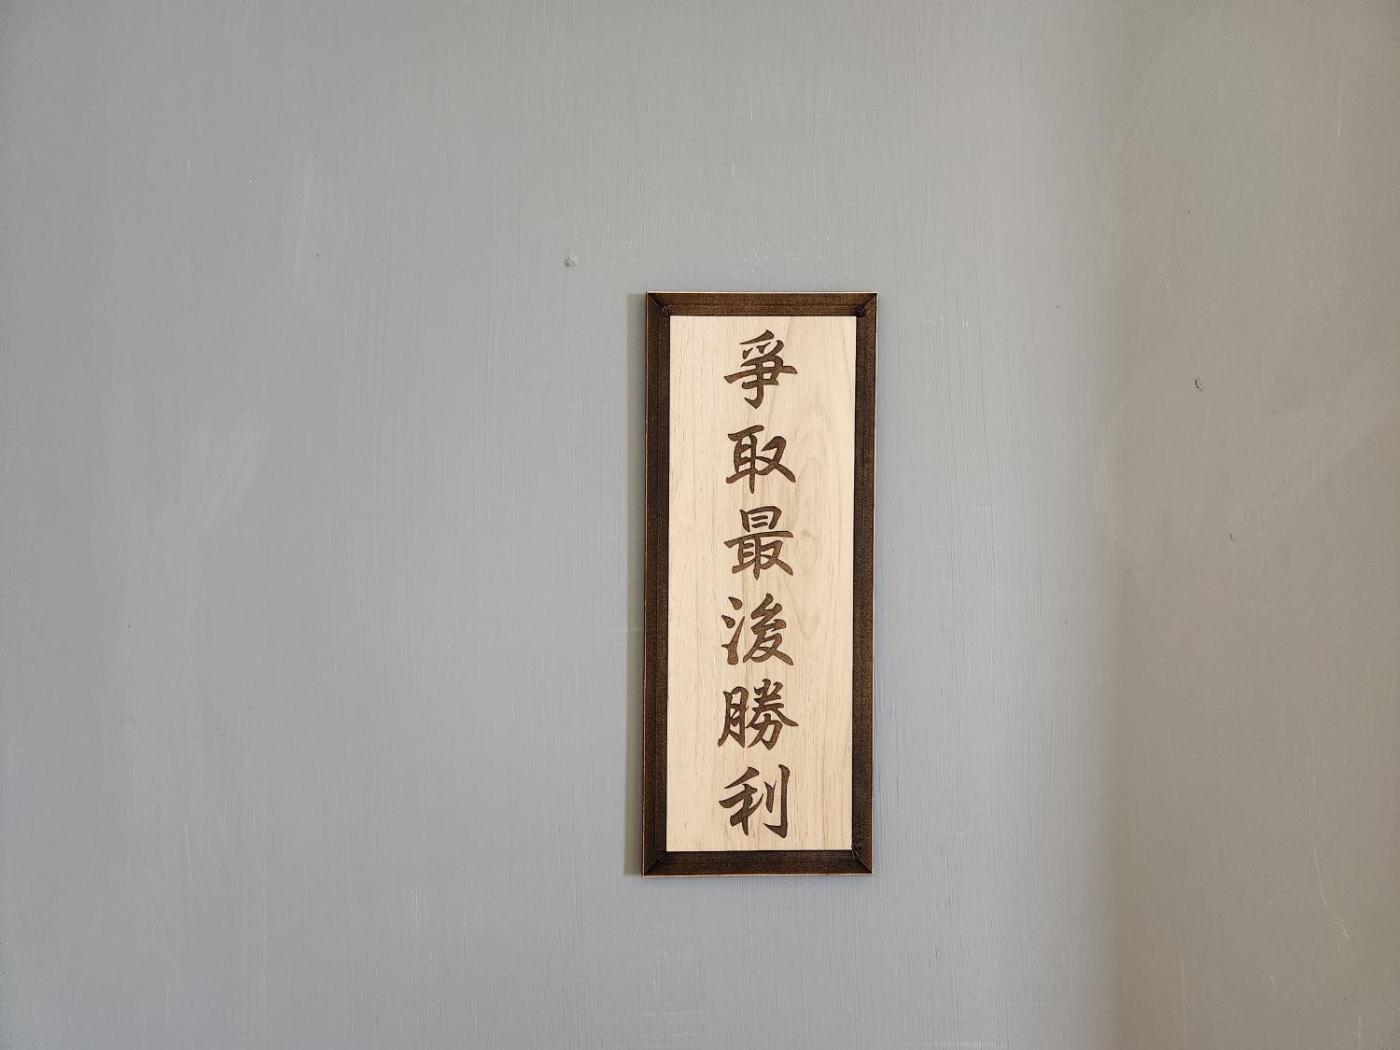 爭取最後勝利